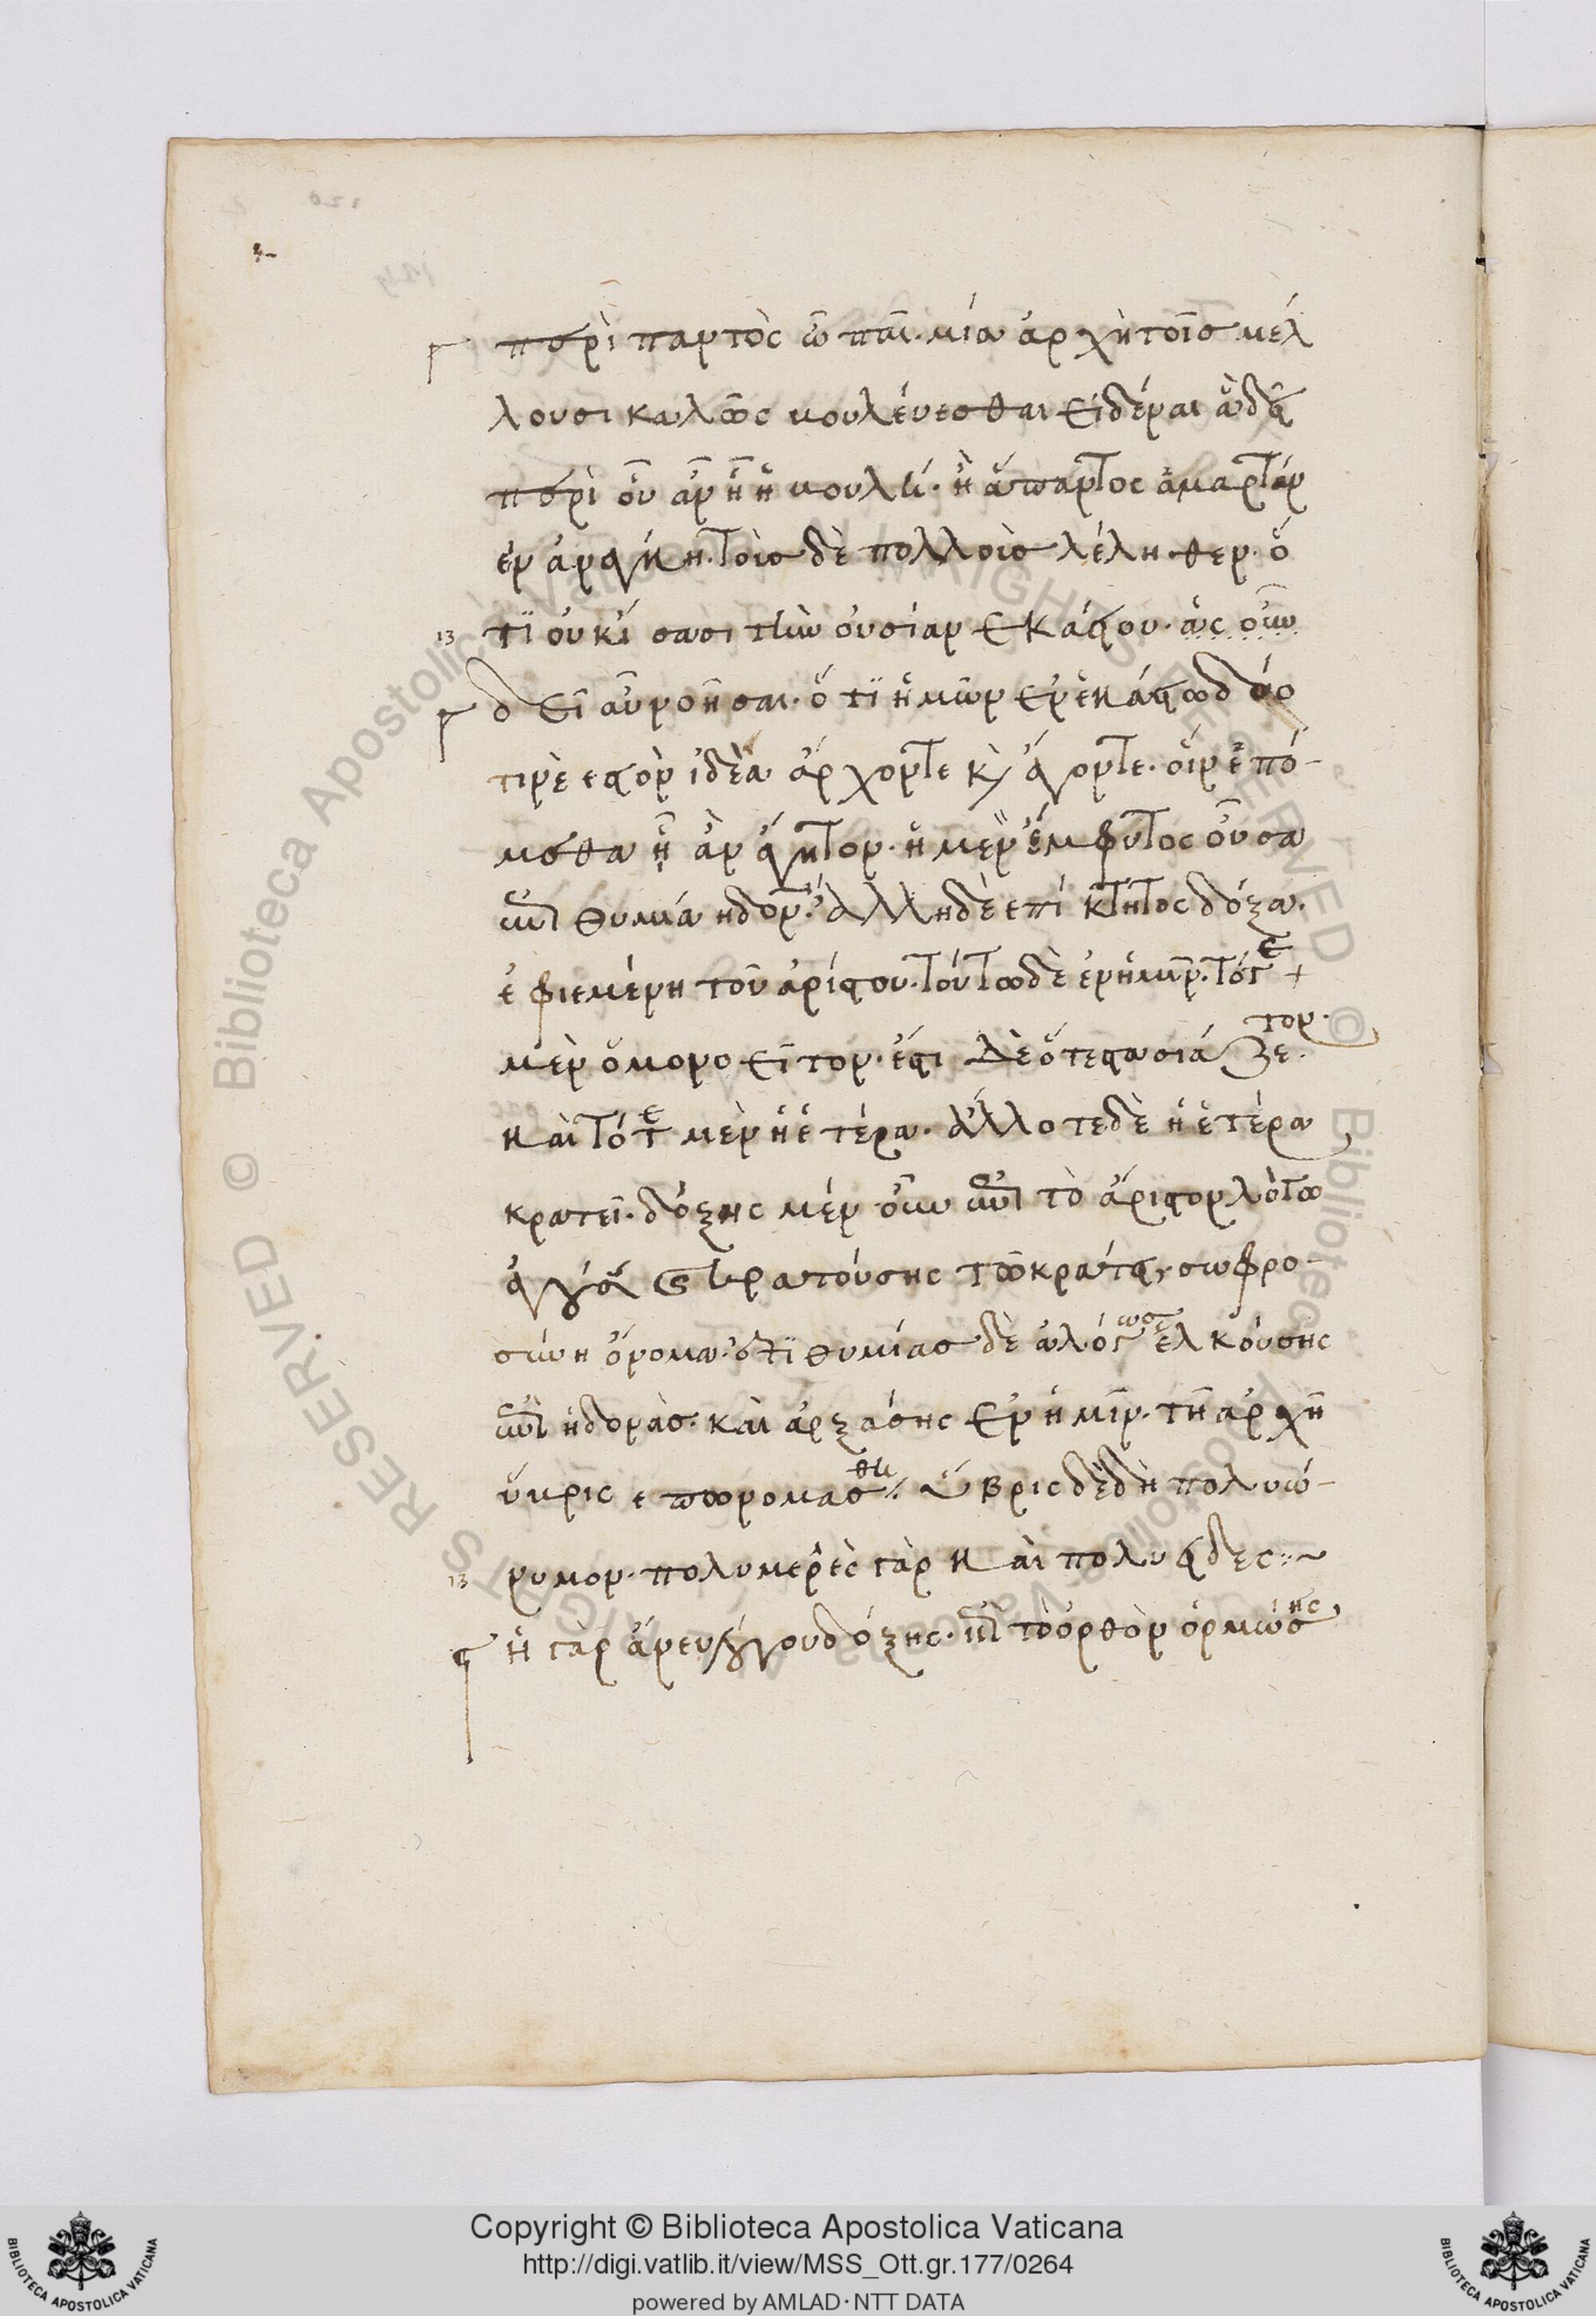 περὶ παντὸς ὦ παῖ· μία ἀρχὴ τοῖσ μέλ
λουσι καλῶς βουλέυεσθαι εἰδέναι δεῖ
περὶ οὗ ἂν ᾖ ἡ βουλή· ἢ ἅπαντος ἁμαρτάν
ειν ἀνάγκη· τοὺσ δὲ πολλοὺσ λέληθεν· ὅ
13 τι οὐκ ἴσασι τὴν οὐσίαν ἑκάστου· ὡς οὖν
δεῖ αὖ νοῆσαι· ὅτι ἡμῶν ἐν ἑκάστω δύο
τινέ ἐστον ἰδέα ἄρχοντε κ(αὶ) ἄγοντε· οἷν ἑπό-
μεθα ᾗ ἂν ἄγητον· ἡ μὲν ἔμφυτος οὖσα
ἐπιθυμία ἡδον(ῶν)· ἄλλη δὲ ἐπίκτητος δόξα·
ἐφιεμένη τοῦ ἀρίστου· τούτω δὲ ἐν ἡμῖν· τότε
μὲν ὁμονοεῖτον· ἔστι δὲ ὅτε στασιάζετον·
καὶ τότε μὲν ἡ ἑτέρα· ἄλλοτε δὲ ἡ ἑτέρα
κρατεῖ· δόξης μὲν οὖν ἐπὶ τὸ ἄριστον λόγω
ἀγούσης κρατούσης τῶ κράτει σωφρο-
σύνη ὄνομα· ἐπιθυμίασ δὲ ἀλόγως ἑλκούσης
ἐπὶ ἡδονὰσ· καὶ ἀρξάσης ἐν ἡμῖν· τῆ ἀρχῆ
ὕβρις ἐπωνομάσθη· ὕβρις δὲ δὴ πολυώ-
13 νυμον· πολυμελὲς γὰρ καὶ πολυειδές:~
ἡ γὰρ ἄνευ λόγου δόξης· ἐπὶ τὸ ὀρθὸν ὁρμώσης
Copyright © Biblioteca Apostolica Vaticana
http://digi.vatlib.it/view/MSS_Ott.gr.177/0264
powered by AMLAD·NTT DATA